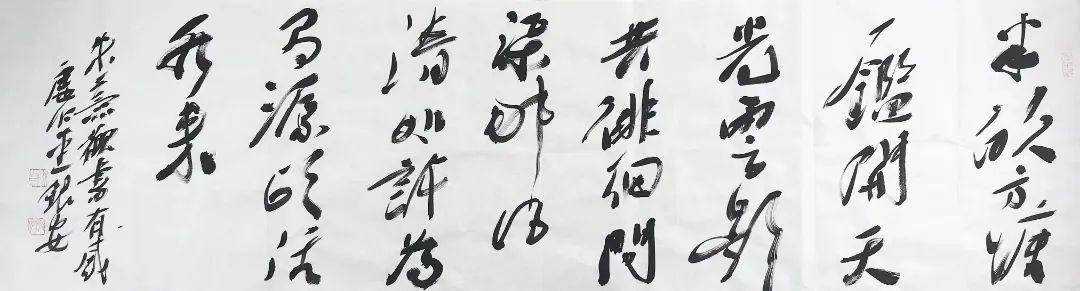 半畝方塘
一鑑開天
光雲影
共徘徊問
渠那得
清如許為
有源頭活
水來
朱熹觀書有感
銀安